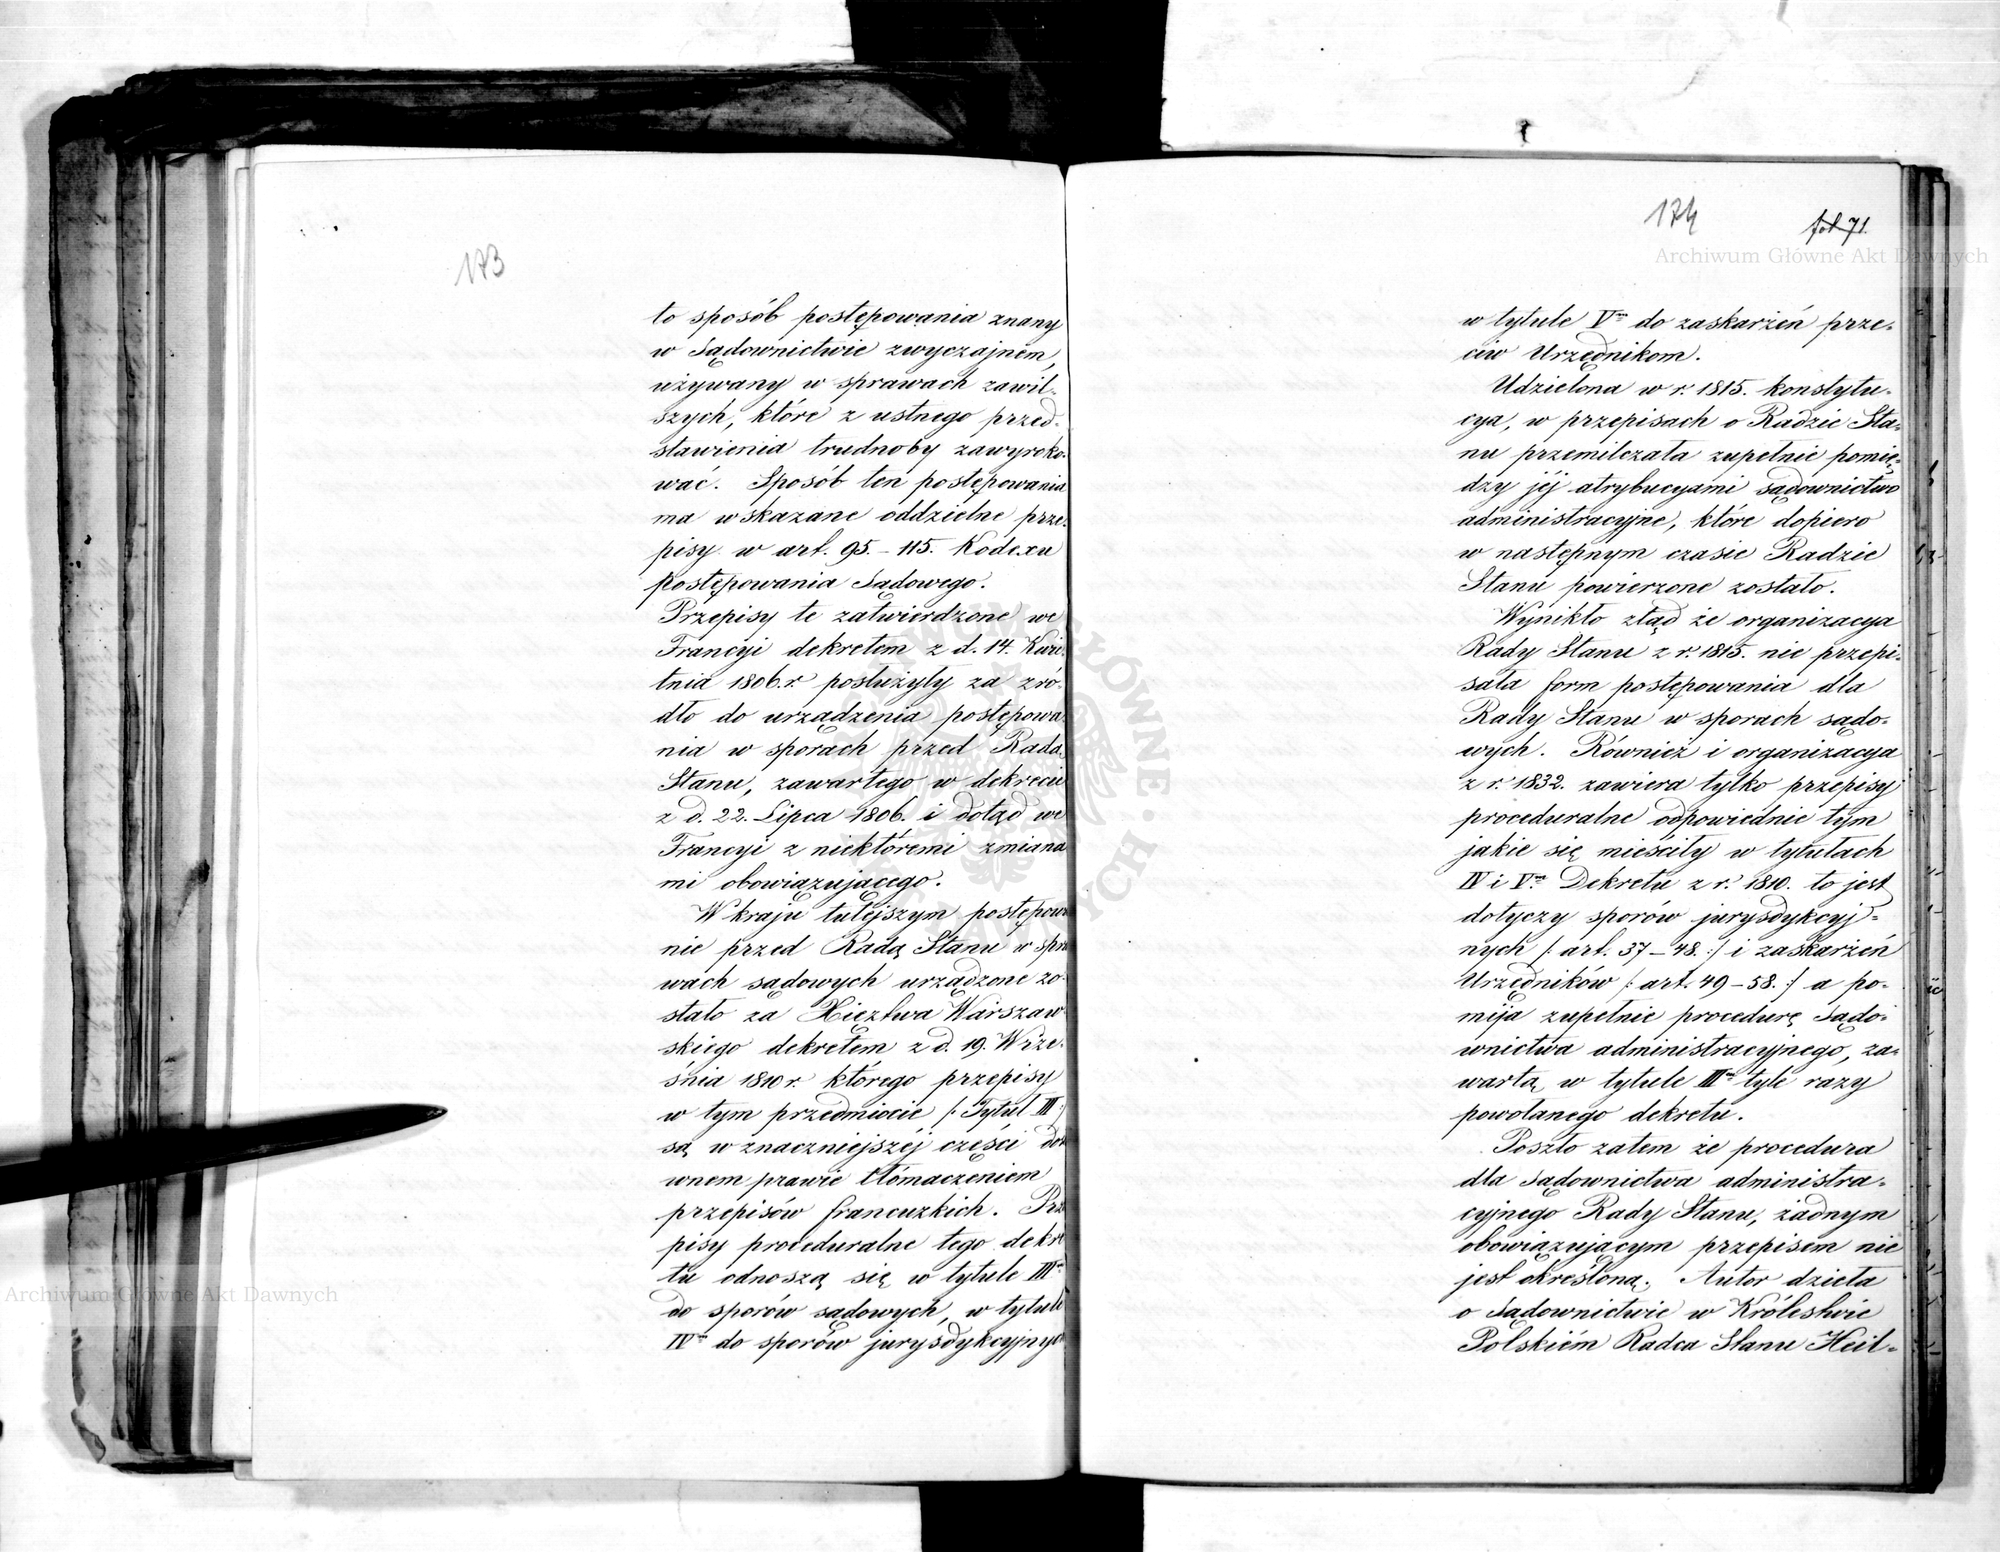 173
to sposób postępowania znany
w Sądownictwie zwyczajnem,
używany w sprawach zawil-
szych, które z ustnego przed-
stawienia trudnoby zawyroko-
wać. Sposób ten postępowania
ma wskazane oddzielne prze-
pisy w art. 95.–115. Kodexu
Postępowania Sądowego.
Przepisy te zatwierdzone we
Francyi dekretem z d. 14. Kwie
tnia 1806.r. posłużyły za źró-
dło do urządzenia postępowa
nia w sporach przed Radą
Stanu, zawartego w dekrecie
z d. 22. Lipca 1806. i dotąd we
Francyi z niektóremi zmiana
mi obowiązującego.
W kraju tutejszym postępowa
nie przed Radą Stanu w spra
wach sądowych urządzone zo-
stało za Xięztwa Warszaw
skiego dekretem z d. 19. Wrze-
śnia 1810 r. którego przepisy
w tym przedmiocie /: Tytuł III :/
są w znaczniejszéj części do
wnem prawie tłómaczeniem
przepisów francuzkich. Prze
pisy proceduralne tego dekre
tu odnoszą się w tytule IIIm
do sporów sądowych, w tytule
IVm do sporów jurysdykcyjnych
174
fol 71.
Archiwum Główne Akt Dawnych
w tytule Vm do zaskarżeń prze-
ciw Urzędnikom.
Udzielona w r. 1815. Konstytu-
cya, w przepisach o Radzie Sta-
nu przemilczała zupełnie pomię-
dzy jéj atrybucyami sądownictwo
administracyjne, które dopiero
w następnym czasie Radzie
Stanu powierzone zostało.
Wynikło ztąd że organizacya
Rady Stanu z r. 1815. nie przepi-
sała form postępowania dla
Rady Stanu w sporach sądo-
wych. Również i organizacya
z r. 1832. zawiera tylko przepisy
proceduralne odpowiednie tym
jakie się mieściły w tytułach
IV i Vm Dekretu z r. 1810. to jest
dotyczy sporów jurysdykcyj-
nych /: art. 37–48. :/ i zaskarżeń
Urzędników /: art. 49–58. :/ a po-
mija zupełnie procedurę Sądo-
wnictwa administracyjnego, za-
wartą w tytule IIIm tyle razy
powołanego dekretu.
Poszło zatem że procedura
dla Sądownictwa administra-
cyjnego Rady Stanu, żadnym
obowiązującym przepisem nie
jest określoną. Autor dzieła
o Sądownictwie w Królestwie
Polskiém Radca Stanu Heil-
Archiwum Główne Akt Dawnych